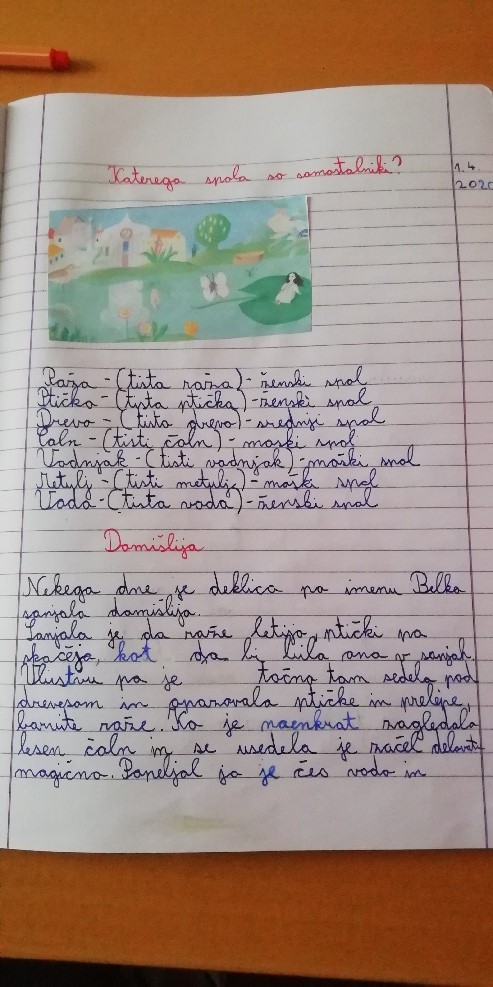 Katerega spola so samostalniki?
1.4.
2020
Roža - (tista roža) - ženski spol
Ptička - (tista ptička) - ženski spol
Drevo - (tisto drevo) - srednji spol
Čoln - (tisti čoln) - moški spol
Vodnjak - (tisti vodnjak) - moški spol
Metulj - (tisti metulj) - moški spol
Voda - (tista voda) - ženski spol
Domišlija
Nekega dne je deklica po imenu Belka
sanjala domišlija.
Sanjala je da rože letijo, ptički pa
skačejo, kot da bi bila ona v sanjah.
Vlustvu pa je točno tam sedela pod
drevesom in opazovala ptičke in prelepe,
barvite rože. Ko je naenkrat zagledala
lesen čoln in se usedela je začel delovati
magično. Popeljal jo je čes vodo in